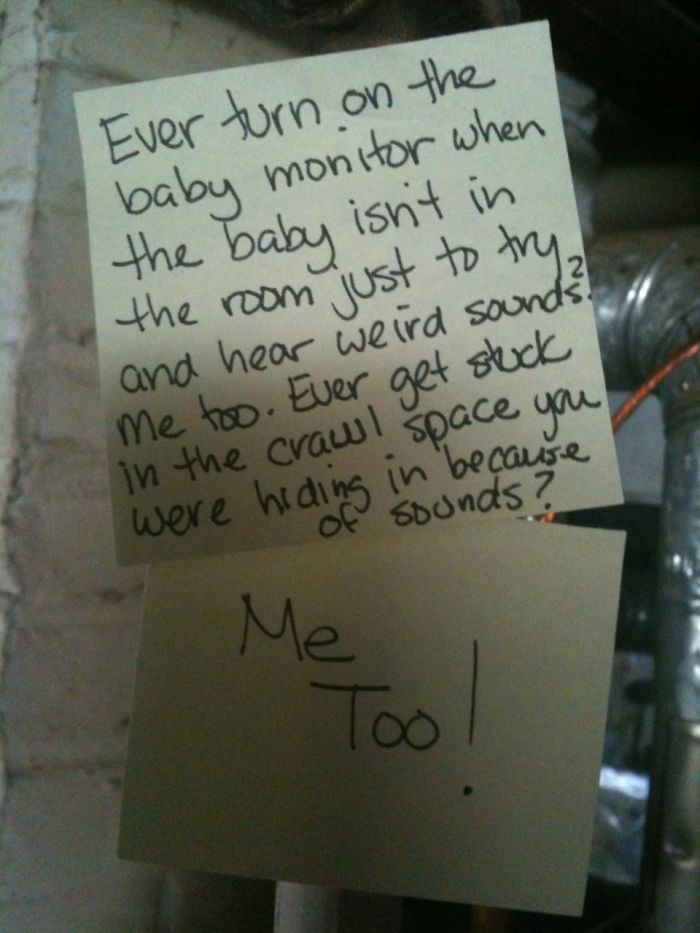 Ever turn on the
baby monitor when
the baby isn't in
the room just to try
and hear weird sounds?
Me too. Ever get stuck
in the crawl space you
were hiding in because
of sounds?
Me
Too!